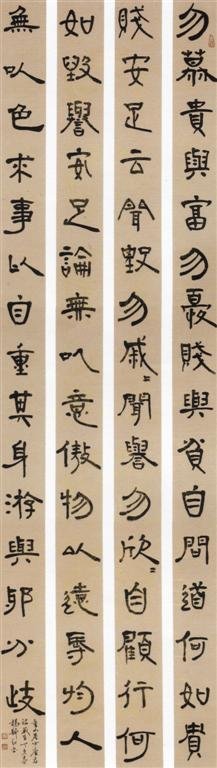 勿慕貴與富勿憂賤與貧自問道何如貴
賤安足云聞毀勿戚〻聞譽勿欣〻自顧行何
如毀譽安足論無以意傲物以遠辱於人
無以色求事以自重其身游與邪分歧